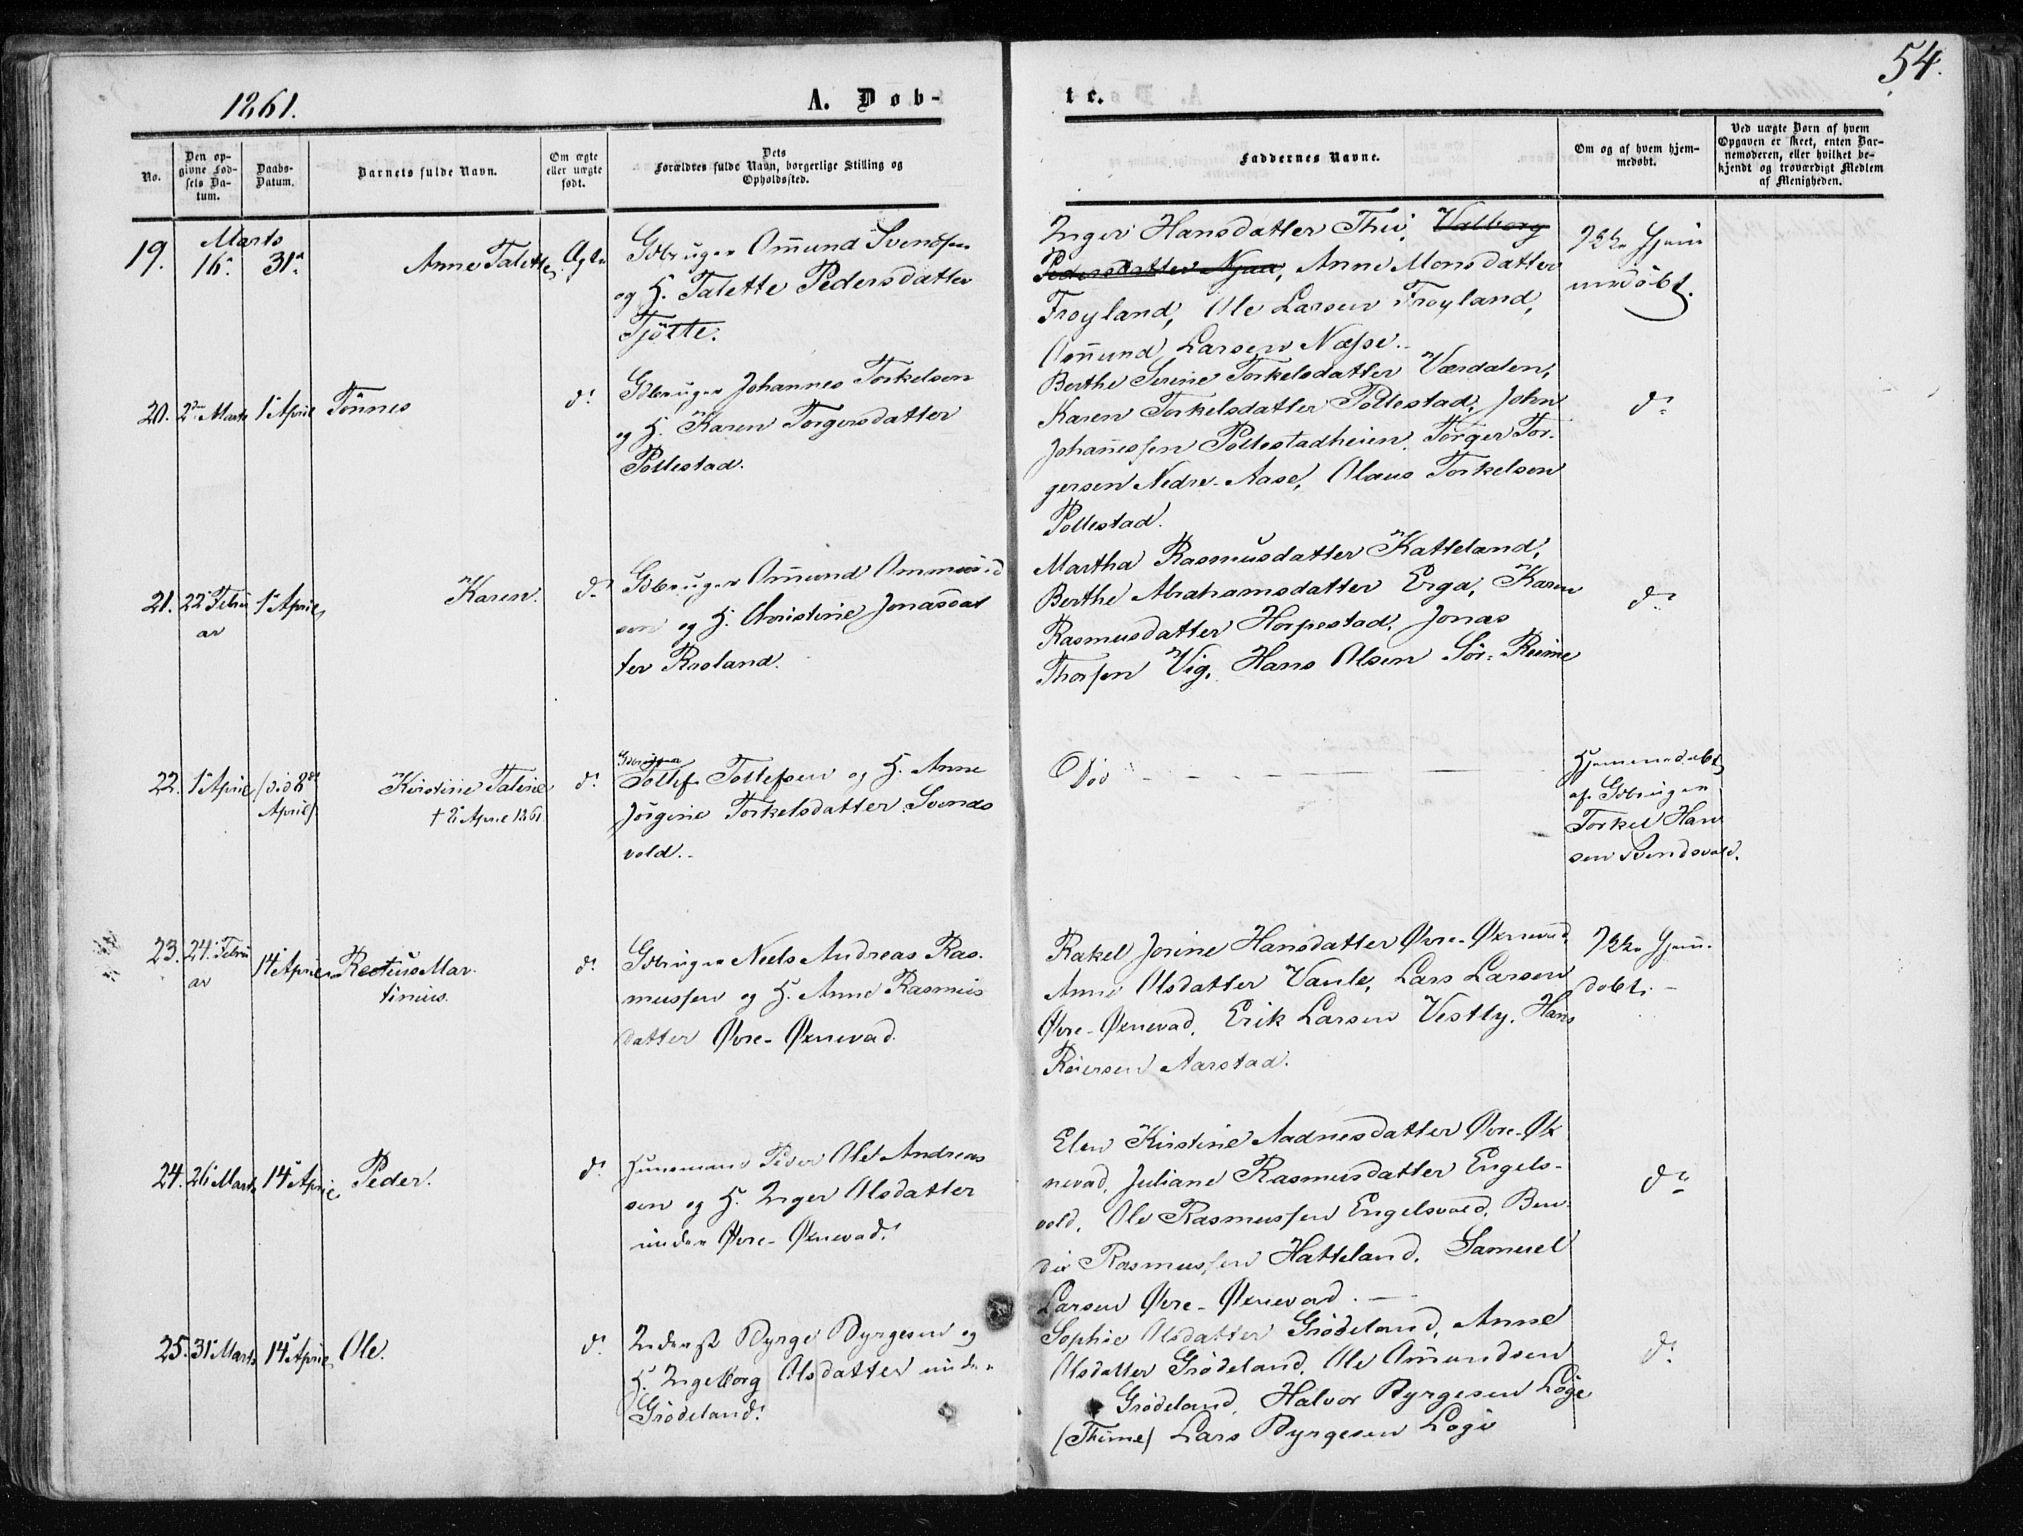 1861.
A. Døb-
te.
54.
No.
Den op-
givne Fød-
sels Da-
tum.
Daabs-
Datum.
Barnets fulde Navn.
Om ægte
eller uægte
født.
Dets
Forældres fulde Navn, borgerlige Stilling og
Opholdssted.
Faddernes Navne.
Om og af hvem hjem-
medøbt.
Ved uægte Børn af hvem
Opgaven er skeet, enten Bar-
nemoderen, eller hvilket be-
kjendt og troværdigt Medlem
af Menigheden.
19.
Marts
16.
31.
Anne Talette
Ægte
Gdbruger Omund Svendsen
og H. Talette Pedersdatter
Tjötte.
Inger Hansdatter Thu, Valborg
Pedersdatter Njaa, Anne Monsdatter
Frøyland, Ole Larsen Frøyland,
Omund Larsen Næsse.
Ikke hjem
medöbt.
20.
2den Marts
1 April
Tönnes
do
Gdbruger Johannes Torkelsen
og H. Karen Torgersdatter
Pollestad.
Berthe Serine Torkelsdatter Værdalen,
Karen Torkelsdatter Pollestad, John
Johannessen Pollestadheien. Torger Tor-
gersen Nedre-Aase, Olaus Torkelsen
Pollestad.
do
21.
22 Febru
ar
1 April
Karen.
do
Gdbruger Omund Ommund
sen og H. Christine Jonasdat
ter Risland.
Martha Rasmusdatter Hatteland,
Berthe Abrahamsdatter Erga, Karen
Rasmusdatter Horpestad, Jonas
Thorsen Vig, Hans Olsen Sör-Reime
do
22.
1 April
(død 8
April)
Kirstine Taline
† 8 April 1861
do
Gdbruger
Tollef Tollefsen og H. Anne
Jörgine Torkelsdatter Svends
vold.
Död
Hjemmedøbt
af Gdbruger
Torkel Han
sen Svendsvold.
23.
24 Febru
ar
14 April
Rastius Mar-
tinius.
do
Gdbruger Neels Andreas Ras-
mussen og H. Anne Rasmus
datter Øvre-Øxnevad.
Rakel Jorine Hansdatter Øvre-Øxnevad,
Anne Olsdatter Vaule, Lars Larsen
Øvre-Øxnevad, Erik Larsen Vestly, Hans
Reiersen Aarstad.
Ikke hjem-
døbt.
24.
26 Marts
14 April
Peder.
do
Huusmand Peder Ole Andreas
sen og H. Inger Olsdatter
under Øvre-Øxnevad.
Elen Kirstine Aadnesdatter Øvre-Øx
nevad, Juliane Rasmusdatter Engels-
vold, Ole Rasmussen Engelsvold, Ben-
dix Rasmussen Hatteland, Samuel
Larsen Øvre-Øxnevad.
do
25.
31 Marts
14 April
Ole.
do
Inderst Byrge Byrgesen og
H. Ingeborg Olsdatter under
Grödeland.
Sophie Olsdatter Grödeland, Anne
Olsdatter Grödeland, Ole Omundsen
Grödeland, Halvor Byrgesen Löge
(Thime) Lars Byrgesen Löge
do